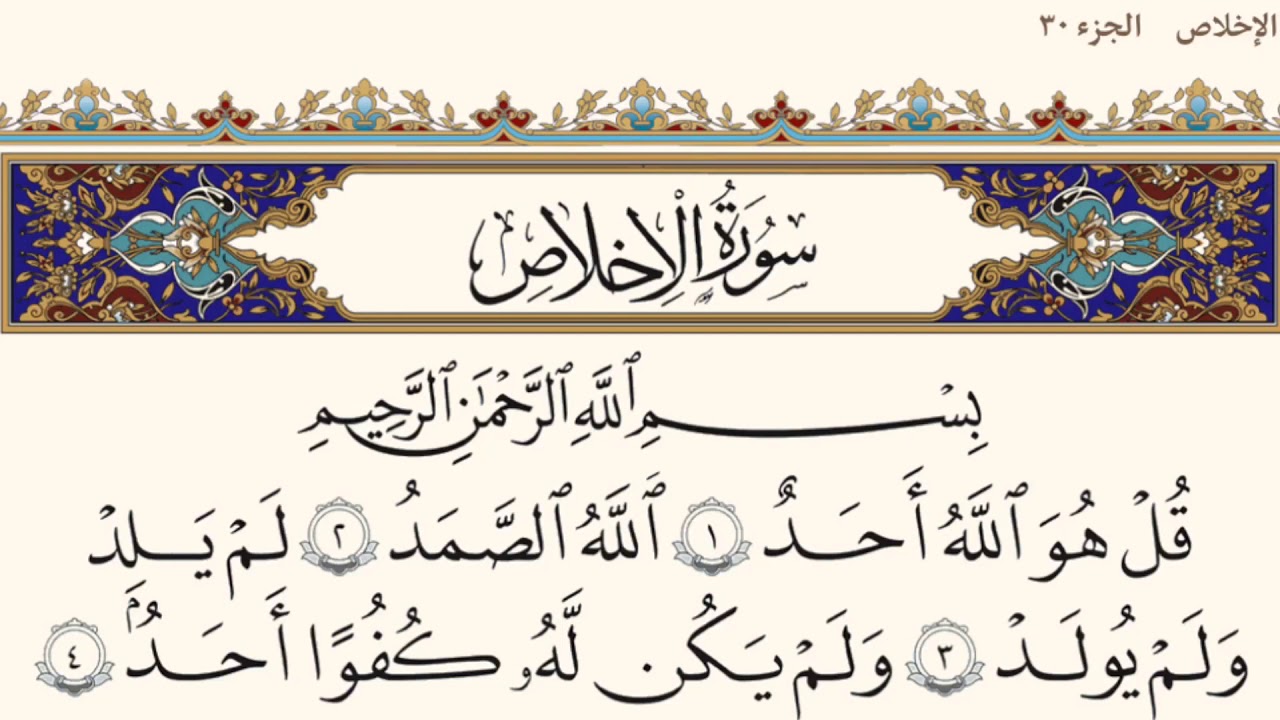 الإخلاص الجزء ٣٠
سُورَةُ الْإِخْلَاصِ
بِسْمِ ٱللَّهِ ٱلرَّحْمَٰنِ ٱلرَّحِيمِ
قُلْ هُوَ ٱللَّهُ أَحَدٌ ١ ٱللَّهُ ٱلصَّمَدُ ٢ لَمْ يَلِدْ
وَلَمْ يُولَدْ ٣ وَلَمْ يَكُن لَّهُۥ كُفُوًا أَحَدُۢ ٤